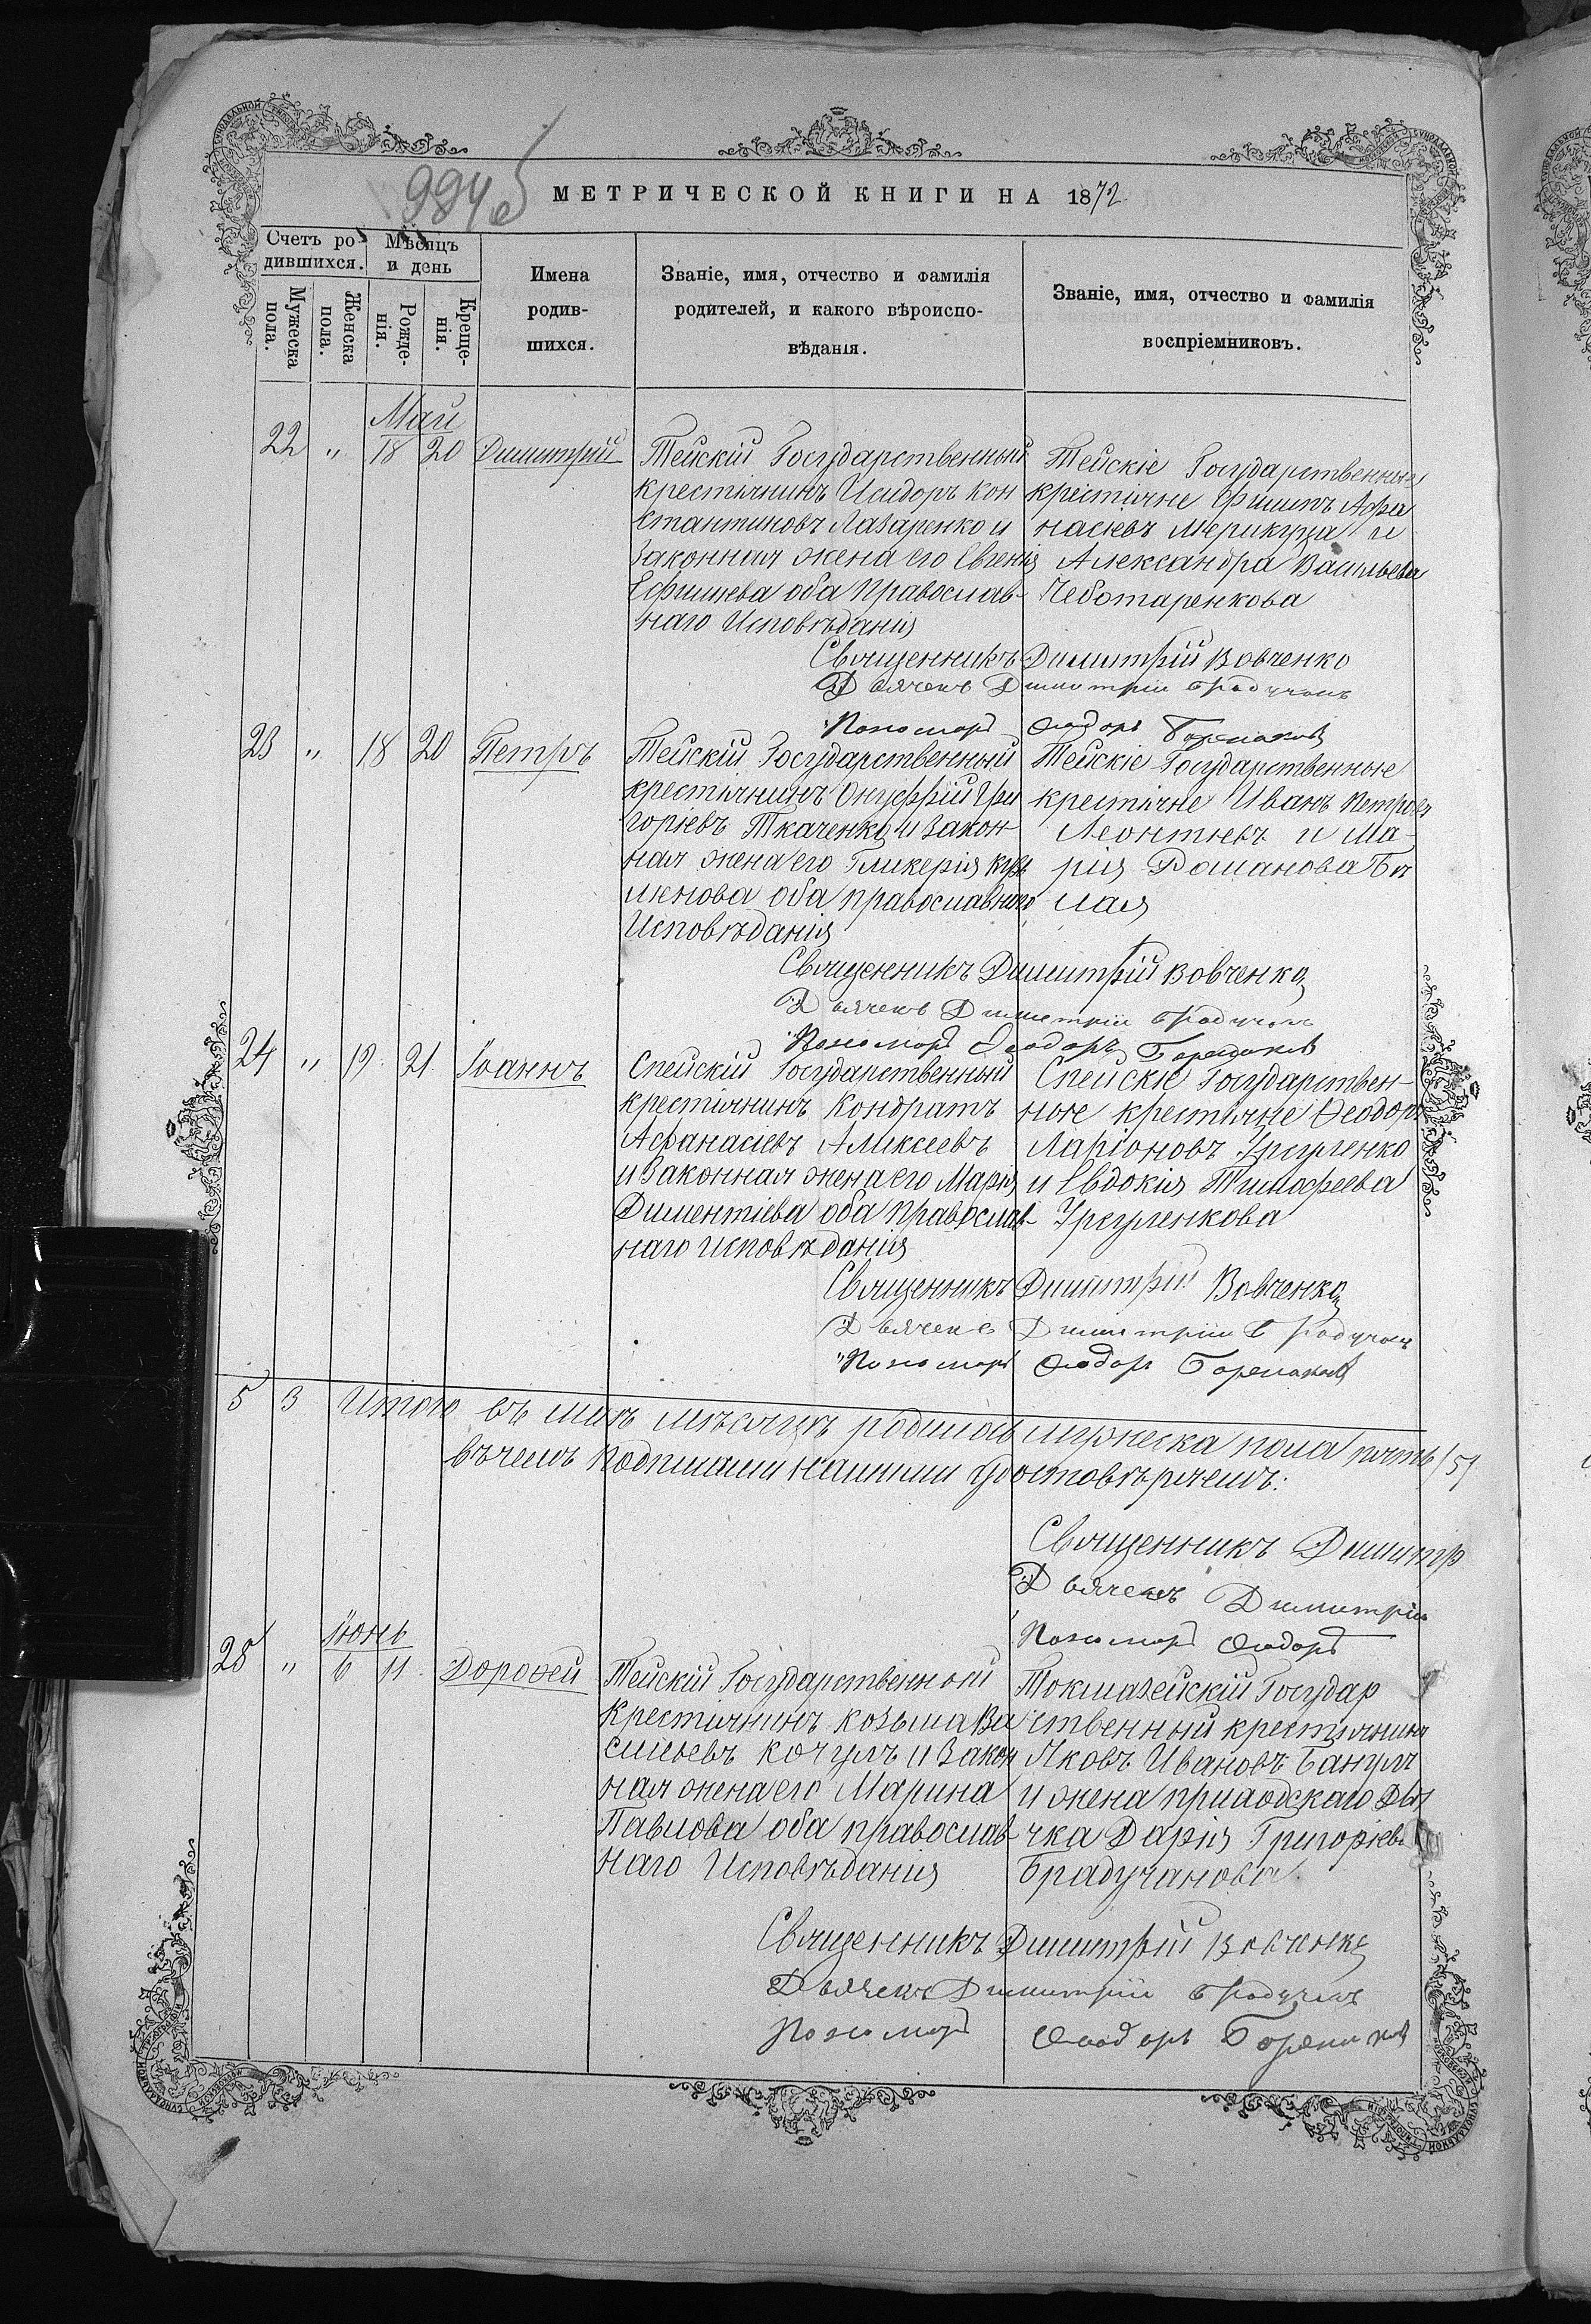 984 об
МЕТРИЧЕСКОЙ КНИГИ НА 1872
Счетъ ро-
дившихся.
Мѣсяцъ
и день
Мужеска
пола.
Женска
пола.
Рожде-
нія.
Креще-
нія.
Имена
родив-
шихся.
Званіе, имя, отчество и фамилія
родителей, и какого вѣроиспо-
вѣданія.
Званіе, имя, отчество и фамилія
воспріемниковъ.
Май
22 " 18 20 Димитрій
Тейскій Государственный
крестьянинъ Исидоръ Кон
стантиновъ Лазаренко и
законная жена его Евгенія
Ефимиева оба Православ-
наго Исповѣданія
Тейскіе Государственные
крестьяне Филипъ Афа
насіевъ Мерикуца и
Александра Васильева
Чеботаренкова
Священникъ Димитрій Вовченко
Дьячекъ Димитрій Брадучанъ
Пономарь Ѳеодоръ
23 " 18 20 Петръ
Тейскій Государственный
крестьянинъ Онуфрій Гри
горіевъ Ткаченко и закон-
ная жена его Гликерія
оба православнаго
Исповѣданія
Тейскіе Государственные
крестьяне Иванъ Петровъ
Леонтіевъ и Ма-
рія Романова Бѣ
лая
Священникъ Димитрій Вовченко
Дьячекъ Димитрій Брадучанъ
Пономарь Ѳеодоръ
24 " 19 21 Іоаннъ
Спейскій Государственный
крестьянинъ Кондратъ
Афанасіевъ Алексеевъ
и законная жена его Марія
Дементіева оба православ-
наго исповѣданія
Спейскіе Государствен-
ные крестьяне Ѳеодоръ
Ларіоновъ Урсуленко
и Евдокія Тимофеева
Урсуленкова
Священникъ Димитрій Вовченко
Дьячекъ Димитрій Брадучанъ
Пономарь Ѳеодоръ
5 3 Итого въ маѣ мѣсяцѣ родилось мужеска пола пять /5/
въ чемъ подписами нашими удостовѣряемъ:
Священникъ Димитр
Дьячекъ Димитрій
Пономарь Ѳеодоръ
Іюнь
25 " 6 11 Дороѳей
Тейскій Государственный
крестьянинъ Козьма Ва
сильевъ Кочулъ и закон
ная жена его Марина
Павлова оба православ-
наго Исповѣданія
Токмазейскій Государ
ственный крестьянинъ
Яковъ Ивановъ Банулъ
и жена приходскаго дья
чка Дарія Григоріева
Брадучанова
Священникъ Димитрій Вовченко
Дьячекъ Димитрій Брадучанъ
Пономарь Ѳеодоръ